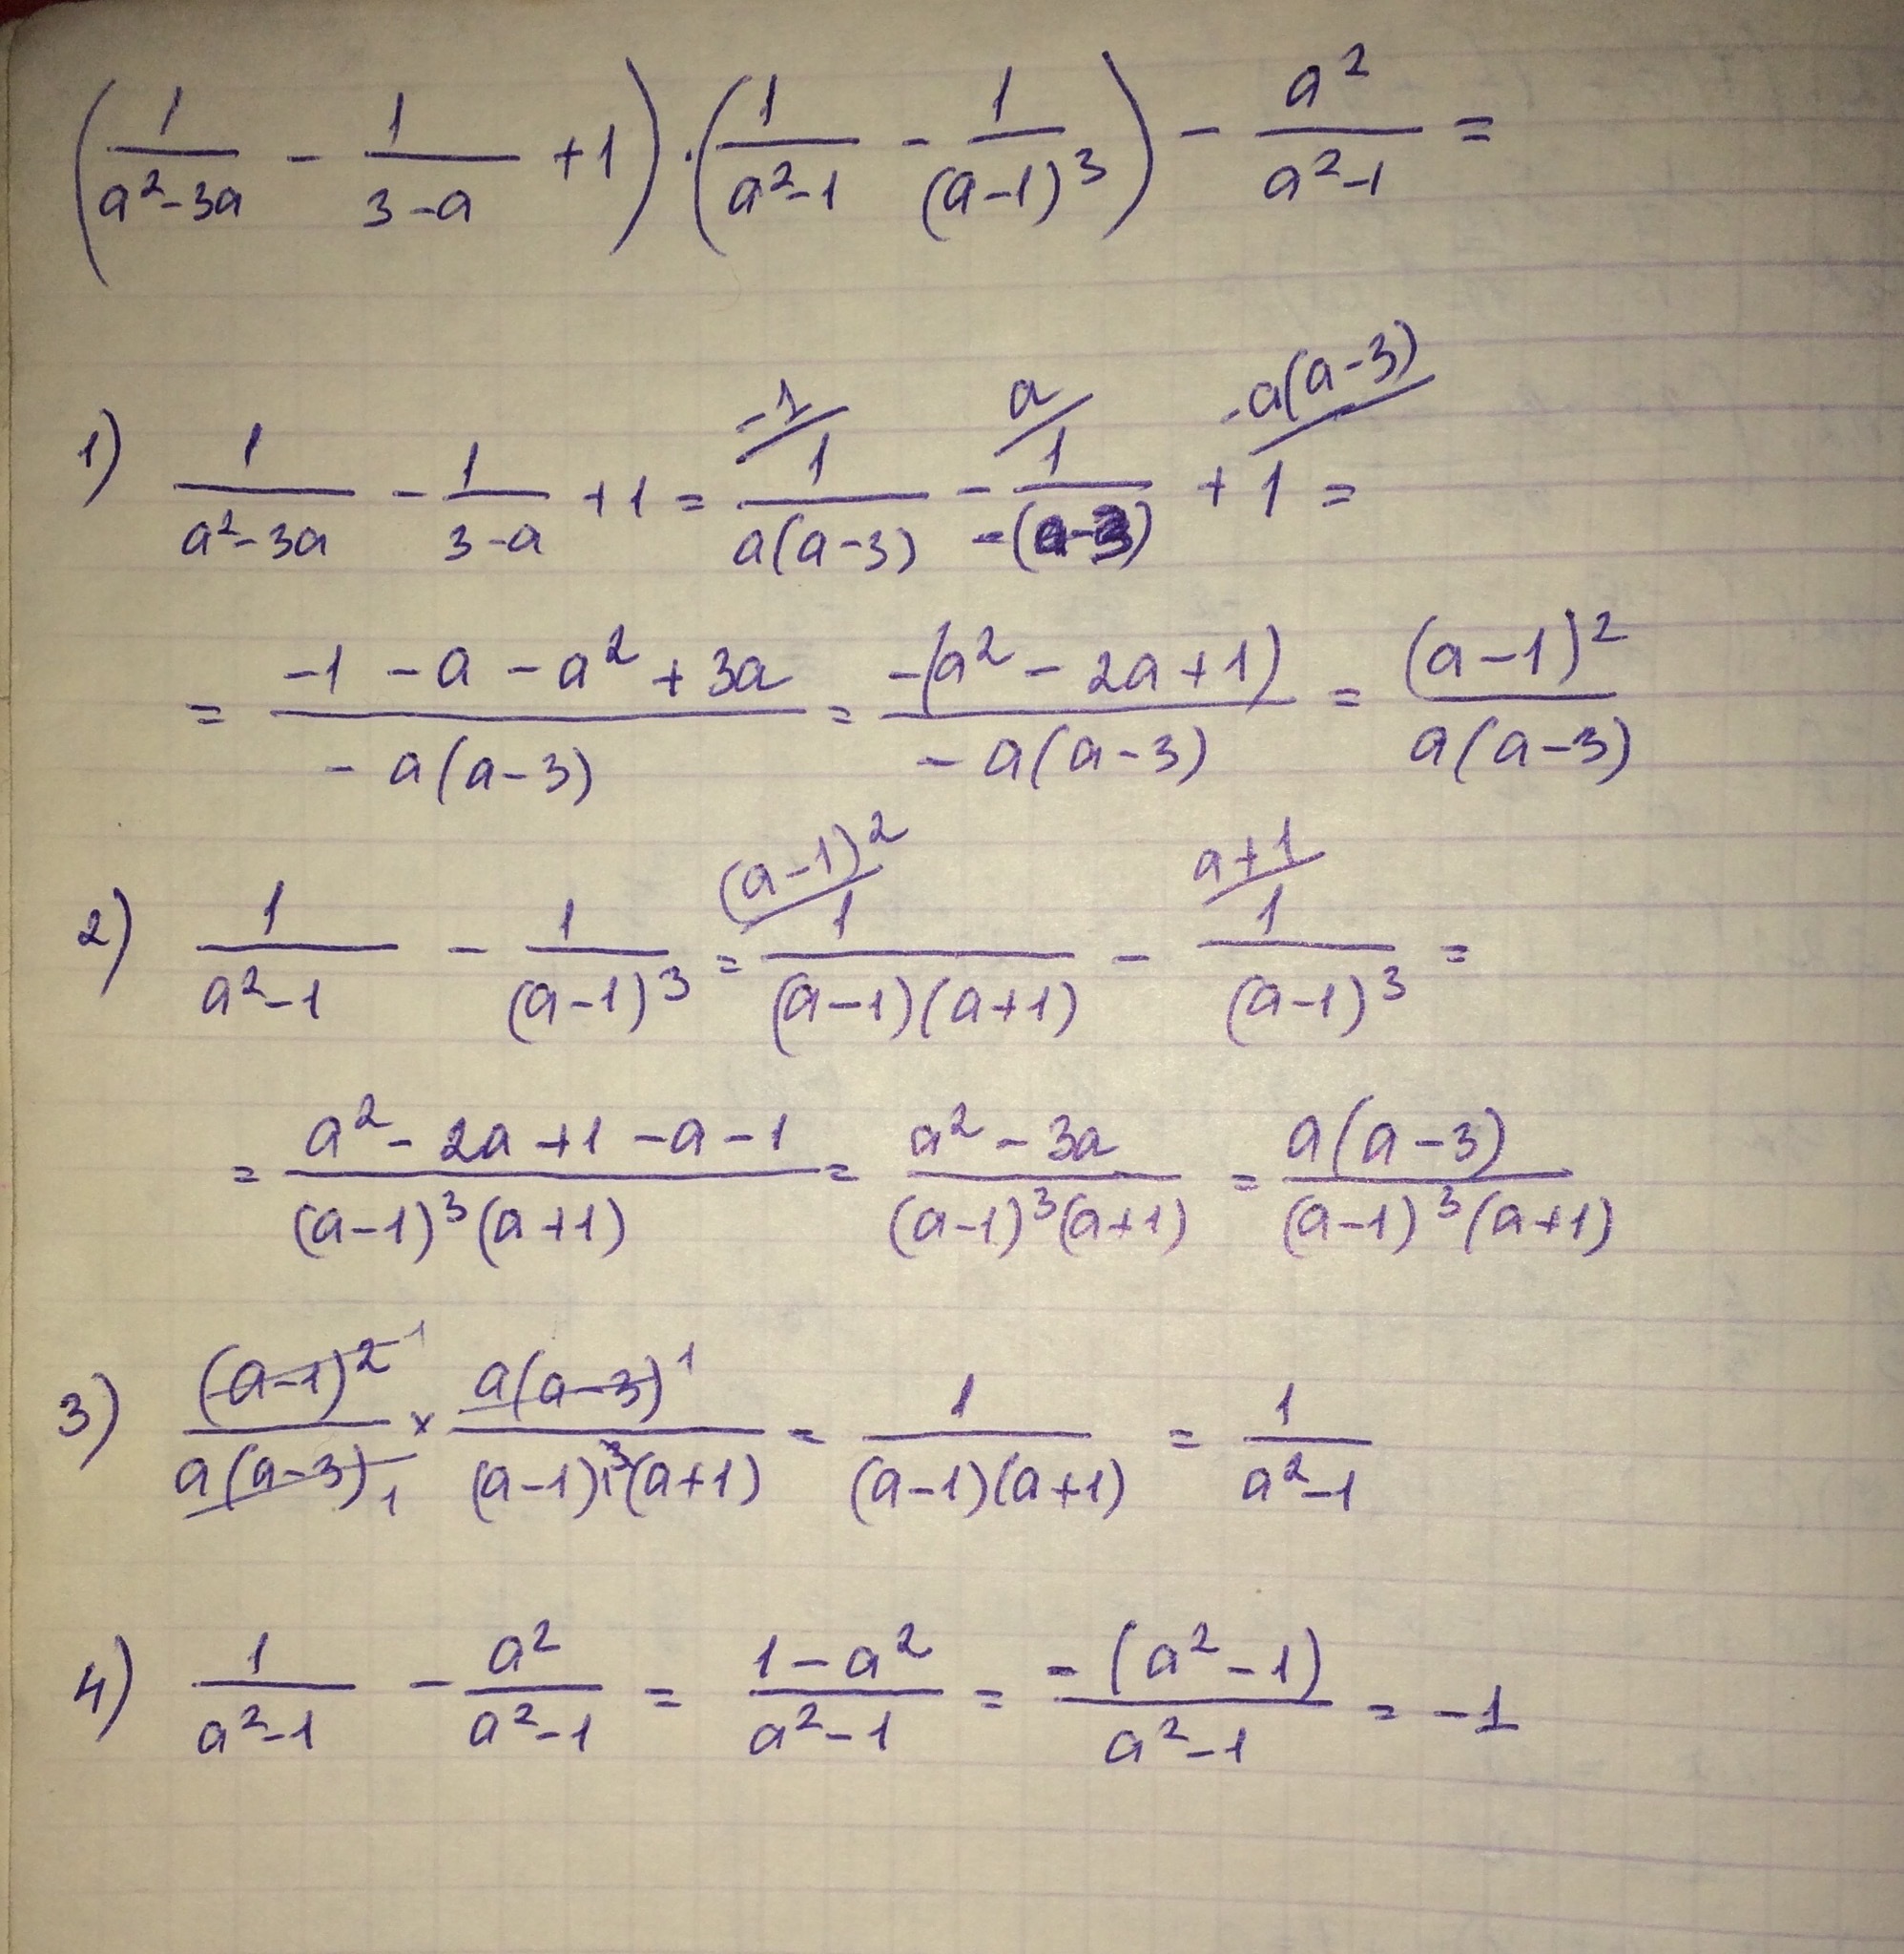 (1/(a²-3a) - 1/(3-a) + 1) · (1/(a²-1) - 1/(a-1)³) - a²/(a²-1) =
1) 1/(a²-3a) - 1/(3-a) + 1 = -1/ 1/(a(a-3)) - a/ 1/(-(a-3)) + -a(a-3)/ 1 =
= (-1 - a - a² + 3a)/(-a(a-3)) = (-(a² - 2a + 1))/(-a(a-3)) = (a-1)²/(a(a-3))
2) 1/(a²-1) - 1/(a-1)³ = (a-1)²/ 1/((a-1)(a+1)) - a+1/ 1/(a-1)³ =
= (a² - 2a + 1 - a - 1)/((a-1)³(a+1)) = (a² - 3a)/((a-1)³(a+1)) = a(a-3)/((a-1)³(a+1))
3) (a-1)² ¹/(a(a-3) ₁) × a(a-3) ¹/((a-1)³(a+1)) = 1/((a-1)(a+1)) = 1/(a²-1)
4) 1/(a²-1) - a²/(a²-1) = (1-a²)/(a²-1) = -(a²-1)/(a²-1) = -1